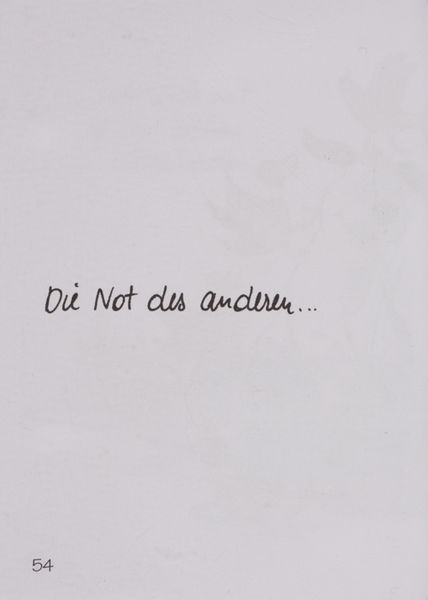 Die Not des anderen...
54